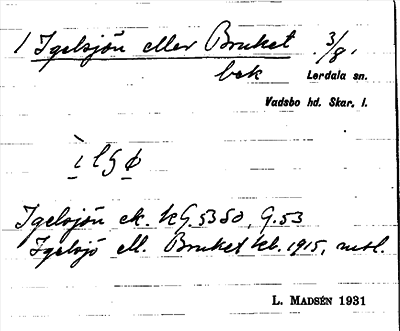 1 Igelsjön eller Bruket 3/8.
bek Lerdala sn.
Vadsbo hd. Skar. l.
ì l ʒ ø
Igelsjön ek. kG. 53 SO, G. 53
Igelsjö ell. Bruket hl. 1915, msl.
L. MADSÉN 1931